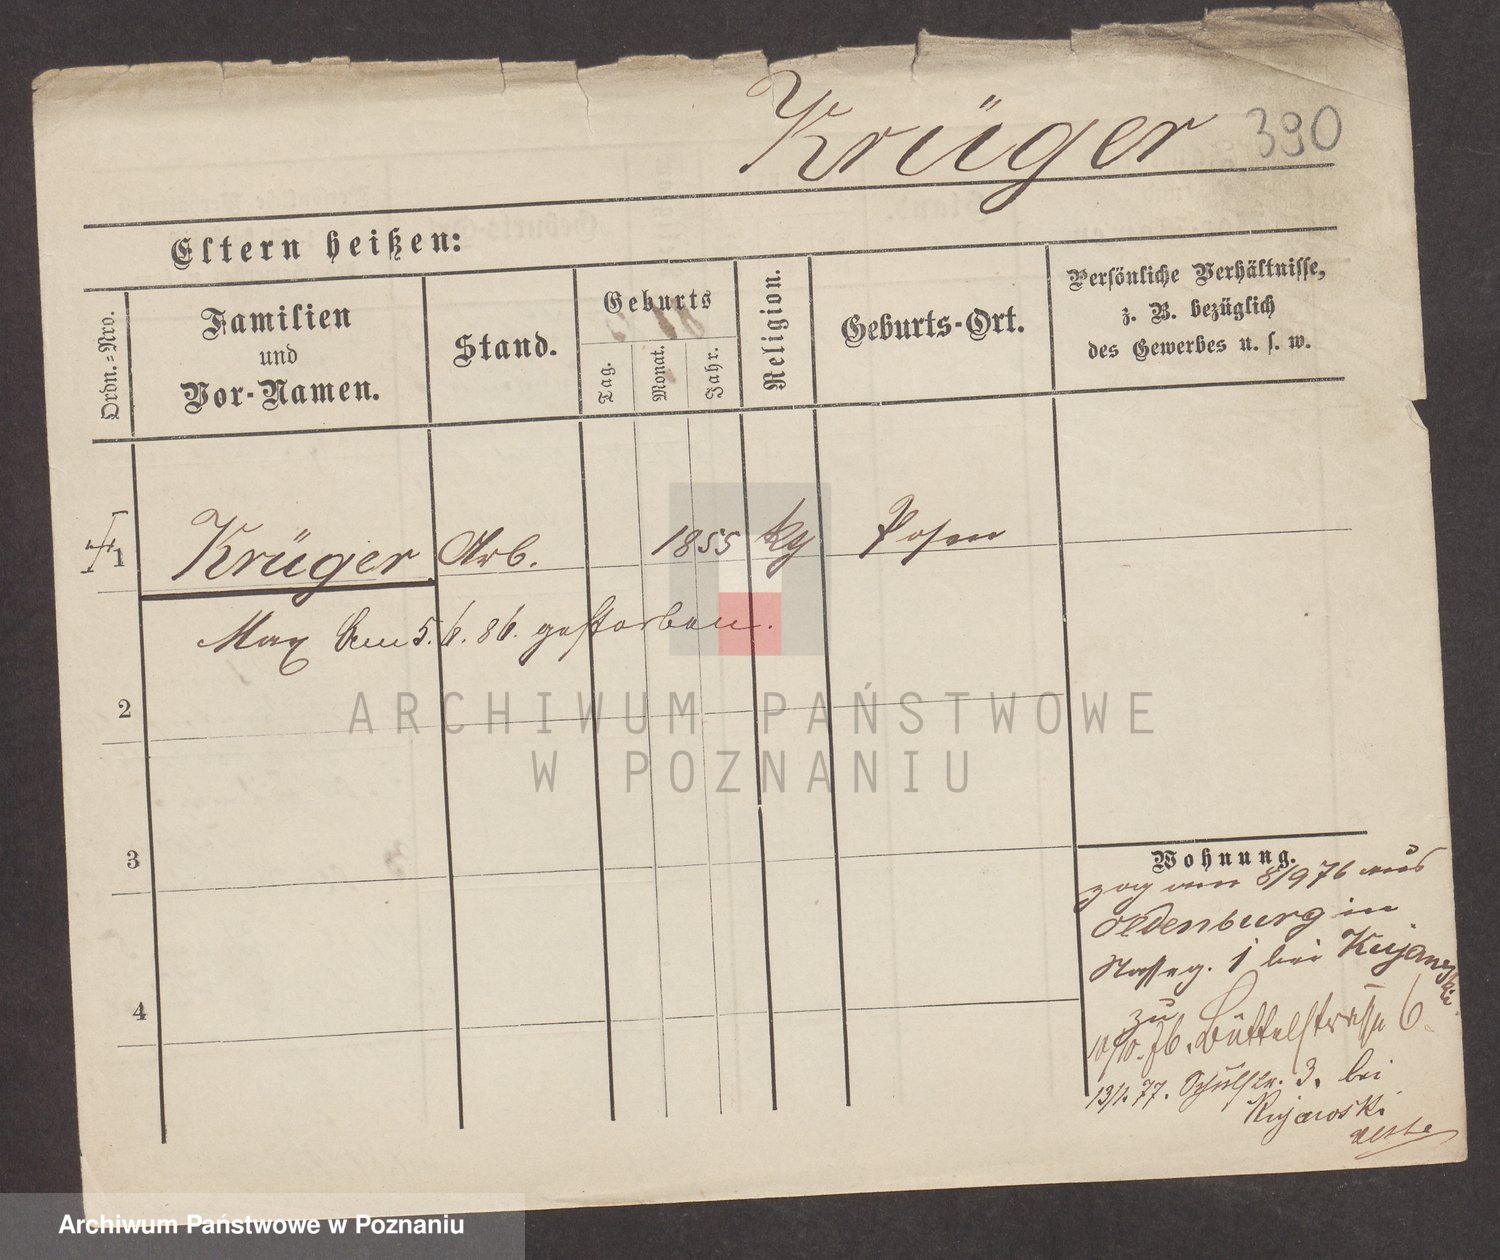 Krüger 390
Eltern heißen:
Ordn.=Nro.
Familien
und
Vor-Namen.
Stand.
Geburts
Tag.
Monat.
Jahr.
Religion.
Geburts-Ort.
Persönliche Verhältnisse,
z. B. bezüglich
des Gewerbes u. s. w.
1 Krüger Arb. 1855 Posen
Max am 5. 6. 86. gestorben.
2
3
4
ARCHIWUM PAŃSTWOWE
W POZNANIU
Wohnung.
zog am 8/9 76 aus
Oldenburg in
1 bei Kujawski
zu
10/10. 76. Büttelstrasse 6
13/1. 77. Schulstr. 3. bei
Kujawski
Archiwum Państwowe w Poznaniu